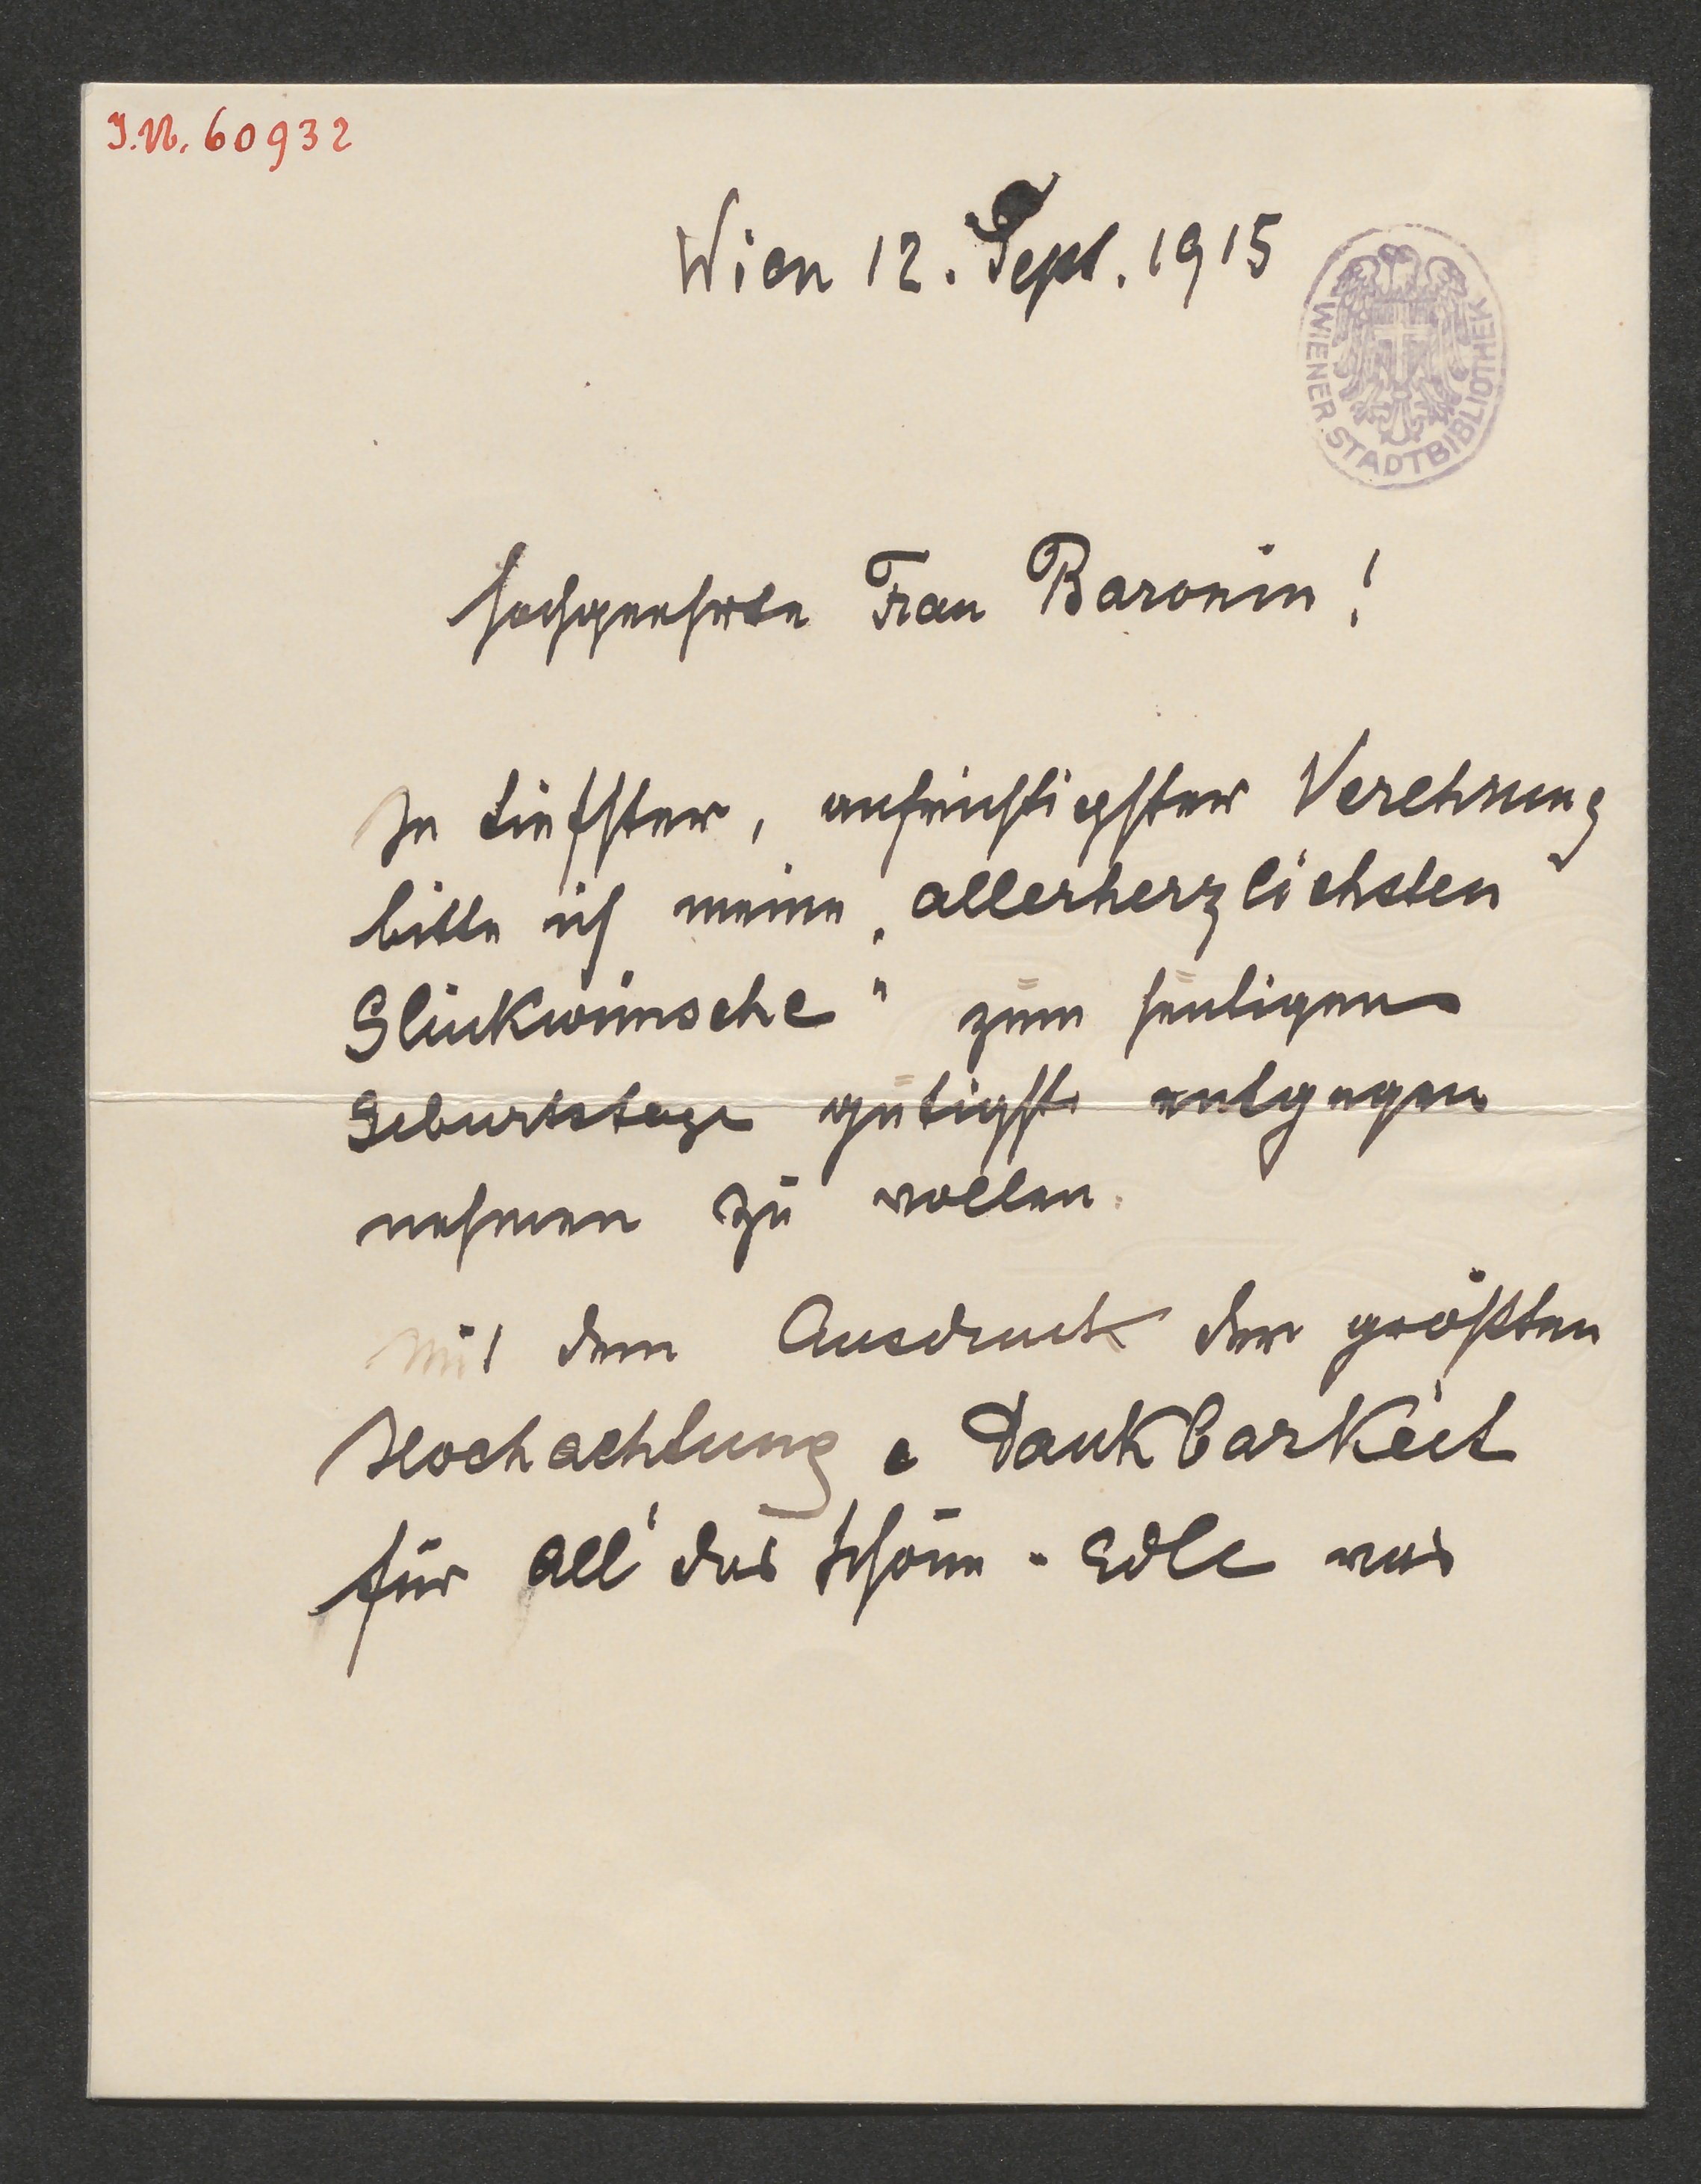 J.N. 60932
Wien 12. Sept. 1915
WIENER STADTBIBLIOTHEK
hochgeehrte Frau Baronin!
In tiefster, aufrichtigster Verehrung
bitte ich meine „allerherzlichsten
Glückwünsche" zum heutigen
Geburtstage gütigst entgegen
nehmen zu wollen.
Mit dem Ausdruck der größten
Hochachtung & Dankbarkeit
für all' das Schöne - Edle was